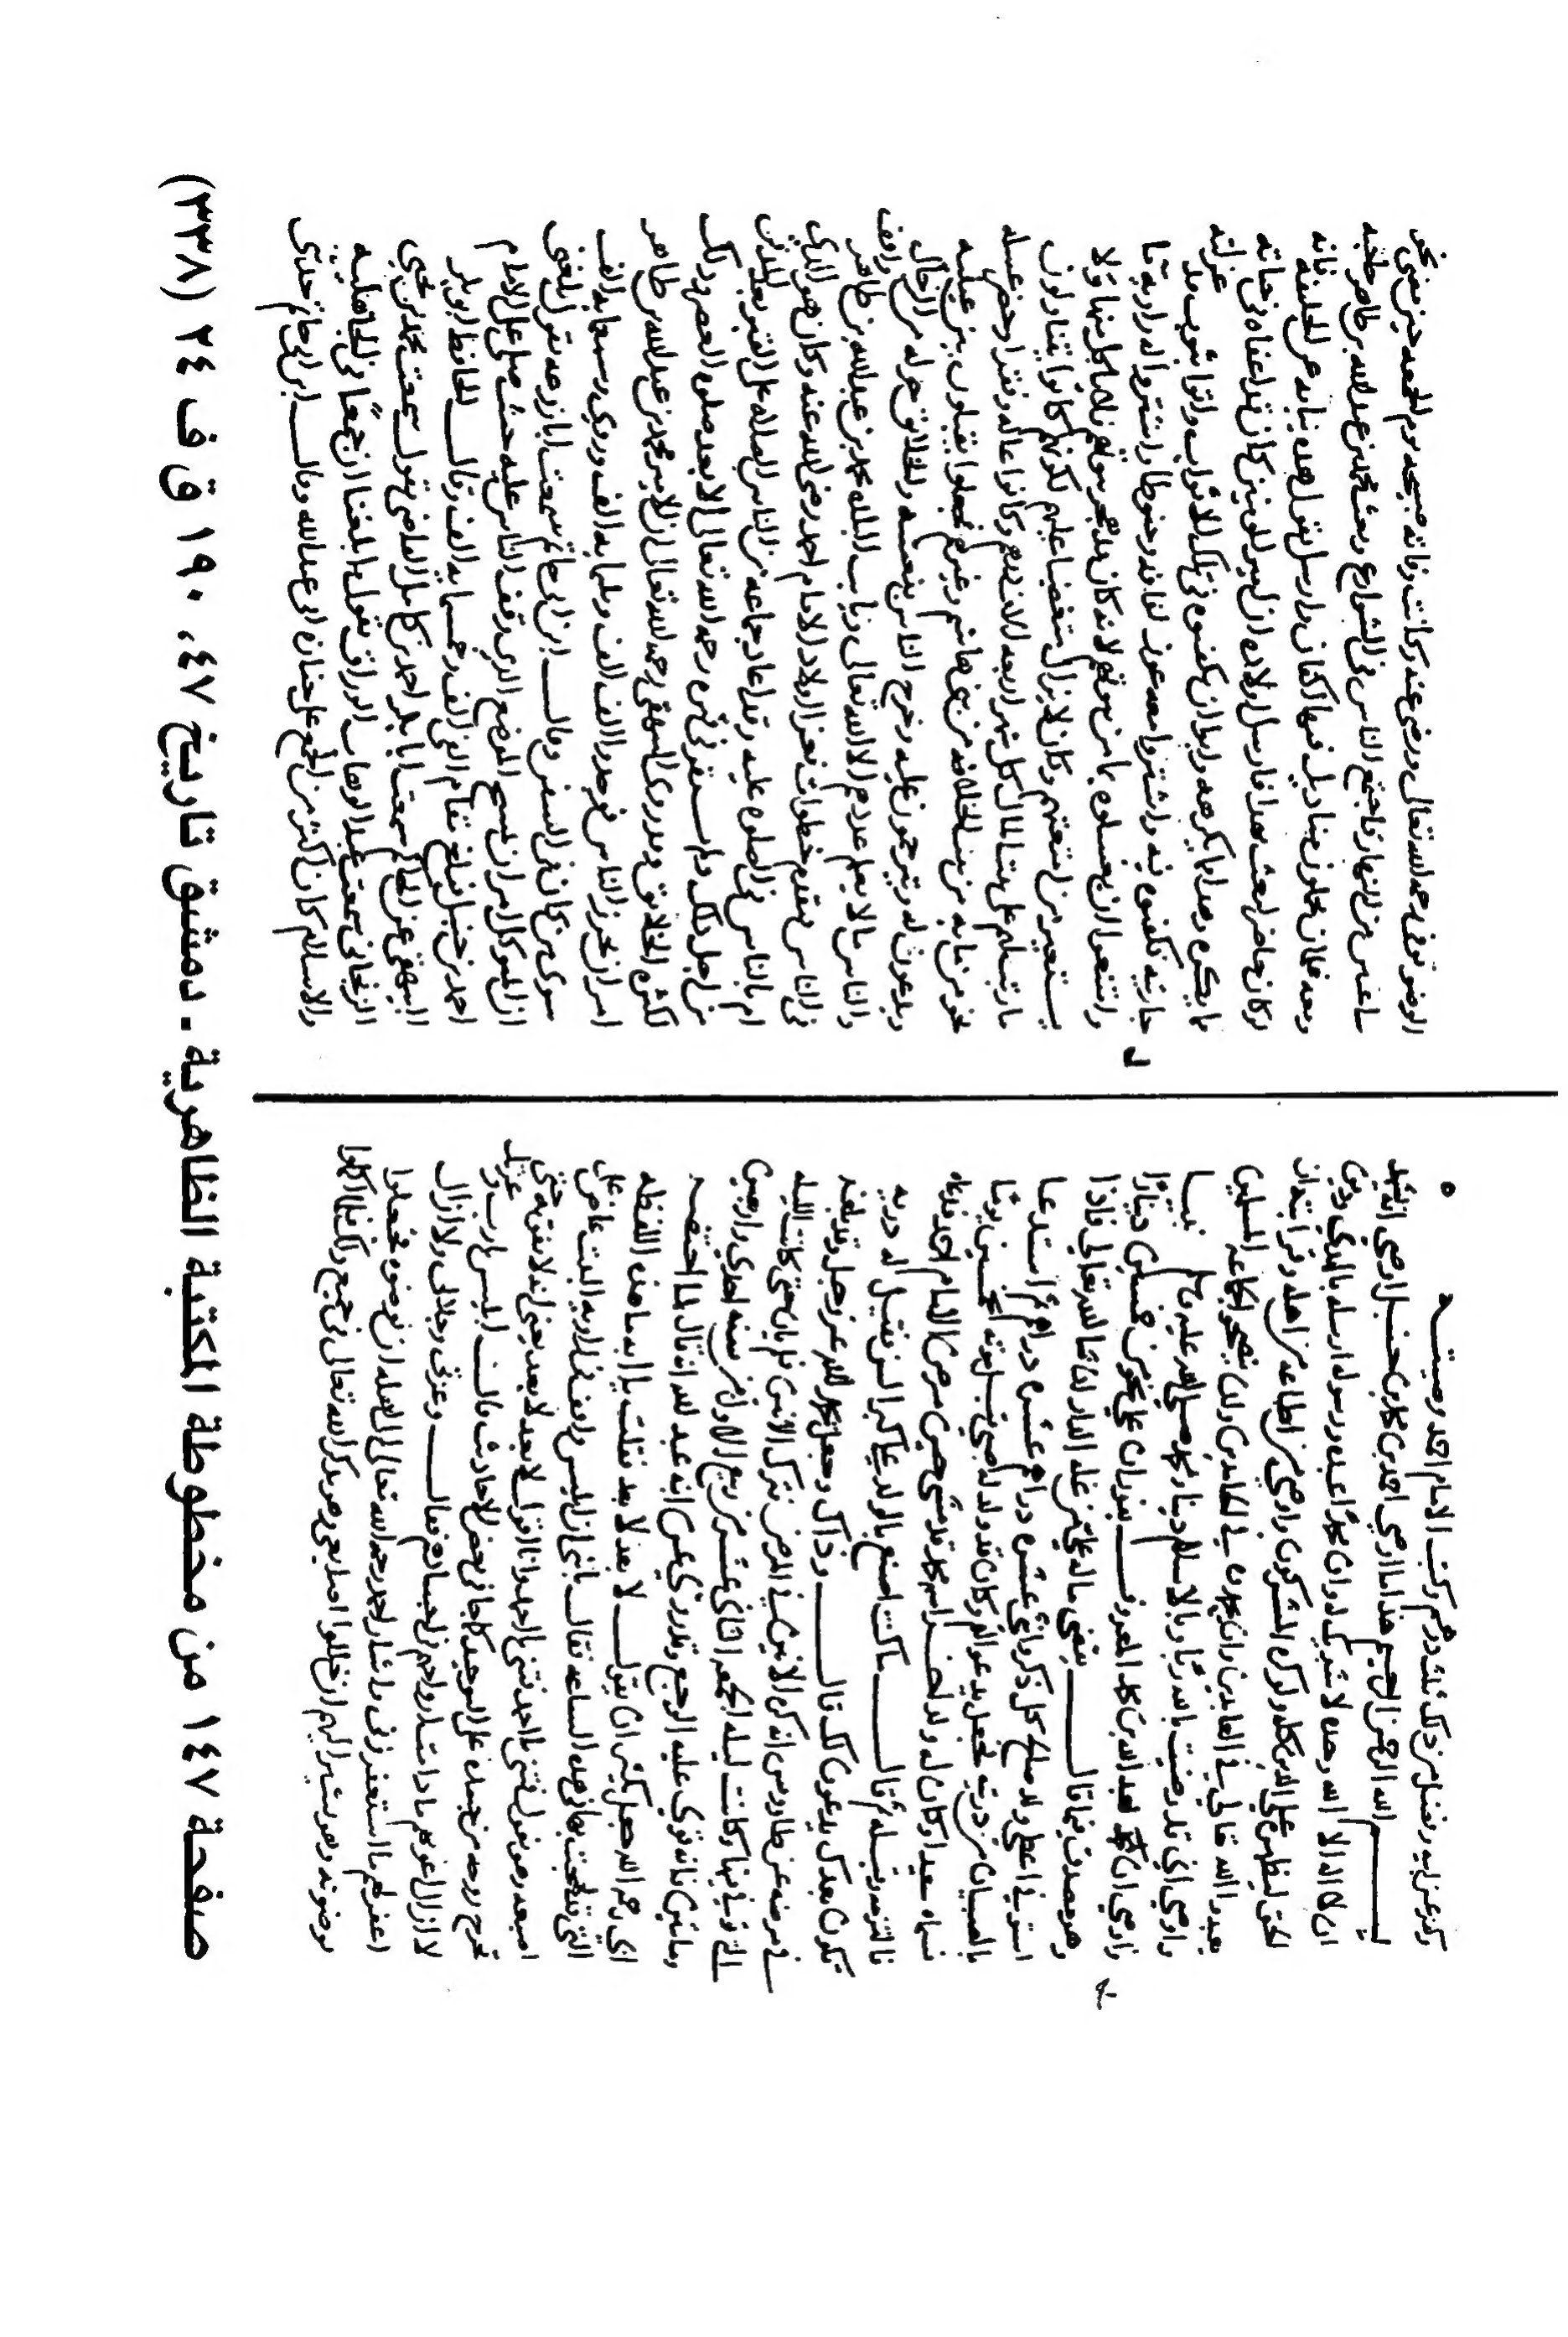 وفضل من ذلك وكتب الامام احمد وصيته
بسم الله الرحمن الرحيم هذا ما اوصى احمد بن محمد بن حنبل اوصى انه يشهد
ان لا اله الا الله وحده لا شريك له وان محمدا عبده ورسوله ارسله بالهدى ودين
الحق ليظهره على الدين كله ولو كره المشركون واوصى من اطاعه من اهله وقرابته ان
يعبدوا الله تعالى في العابدين وان يحمدوه في الحامدين وان ينصحوا لجماعه المسلمين
واوصى اني قد رضيت بالله ربا وبالاسلام دينا وبمحمد صلى الله عليه وسلم نبيا
واوصى ان لعبد الله بن محمد المعروف ببوران علي نحو من خمسين دينارا
وهو مصدق فيما قال يقضى ماله علي من غله الدار ان شا الله تعالى فاذا
استوفى اعطي ولد صالح كل ذكر وانثى عشره دراهم عشره دراهم ثم استدعا
بالصبيان من ذريته فجعل يدعوا لهم وكان قد ولد له صبي قبل موته بخمسين يوما
فسماه سعيدا وكان له ولد اخر اسمه محمد قد مشى حين مرض الامام احمد فدعاه
فالتزمه وقبله ثم قال ما كنت اصنع بالولد على كبر السن فقيل له ذريه
تكون بعدك يدعون لك قال وذاك وجعل يحمد الله عز وجل وقد بلغه
في مرضه عن طاووس انه كره الانين في المرض فترك الانين فلم يان حتى كانت الليله
التي توفي فيها وكانت ليله الجمعه الثاني عشر من ربيع الاول من سنه احدى واربعين
ومايتين فانه قوي عليه الوجع وقد روي عن ابنه عبد الله انه قال لما احتضر
ابي رحمه الله جعل يكثر ان يقول لا بعد لا بعد فقلت يا ابه ما هذه اللفظه
التي تلهجت بها في هذه الساعه فقال يا بني ان ابليس واقف في زاويه البيت عاض على
اصبعه وهو يقول فتني يا احمد فتني يا احمد وانا اقول لا بعد لا بعد يعني انه لا يفوته حتى
تخرج روحه من جسده على التوحيد كما جا في بعض الاحاديث قال ابليس يا رب وعزتك
لا ازال اغويهم ما دامت ارواحهم في اجسادهم فقال وعزتي وجلالي ولا ازال
اغفر لهم ما استغفروني واشار احمد رحمه الله تعالى الى اهله ان يوضوه فجعلوا
يوضونه وهو يشير اليهم ان خللوا اصابعي وهو يذكر الله تعالى في جميع ذلك فلما اكملوا
الوضو توفي رحمه الله تعالى ورضي عنه وكانت وفاته صبيحه يوم الجمعه حين مضى نحو
ساعتين من النهار فاجتمع الناس في الشوارع وبعث محمد بن عبد الله بن طاهر حاجبه
ومعه غلمان يحملون مناديل فيها اكفان وارسل يقول هذه نيابه عن الخليفه فانه
لو كان حاضرا لبعث بهذا فارسل اولاده ان امير المومنين كان قد اعفاه في حياته
مما يكره وهذا مما يكره وابوا ان يكفنوه في تلك الاثواب واتوا بثوب قد غزلته
جاريته فكفنوه فيه واشتروا معه لفافه وحنوطا واشتروا له راويه ما
وامتنعوا ان يغسلوه بما من بيوتهم لانه كان قد هجر بيوتهم فلا ياكل منها ولا
يستعير من امتعتهم وكان لا يزال متغضبا عليهم لكونهم كانوا يتناولون
ما رتب لهم على بيت المال كل شهر اربعه الاف درهم وكانوا عاله فقرا وحضر غسله
نحو من مايه من بيت الخلافه من بني هاشم وغيرهم فجعلوا يقبلون بين عينيه
ويدعون له ويترحمون عليه وخرج الناس بنعشه والخلائق حوله من الرجال
والنسا ما لا يعلم عددهم الا الله تعالى ونايب البلد محمد بن عبد الله بن طاهر واقف
في الناس فتقدم خطوات فعزا اولاد الامام احمد رضي الله عنه وكان هو الذي
ام بالناس في الصلوه عليه وقد اعاد جماعه من الناس الصلاه على القبر بعد الدفن
من اجل ذلك ولم يستقر في قبره رحمه الله تعالى الا بعد صلوه العصر وذلك
لكثره الخلائق وقد روى البيهقي رحمه الله تعالى ان الامير محمد بن عبد الله بن طاهر
امر ان يحزر الناس فوجدوا الف الف وثلثمايه الف وروي وسبعمايه الف
سوى من كان في السفن وقال ابن ابي حاتم سمعت ابا زرعه يقول بلغني
ان المتوكل امر ان يمسح الموضع الذي وقف الناس عليه حيث صلي على الامام
احمد بن حنبل فبلغ مقام الفي الف وخمسمايه الف وقال الحافظ ابو بكر
البيهقي عن الحاكم سمعت ابا بكر احمد بن كامل القاضي يقول سمعت محمد بن يحيى
الزنجاني سمعت عبد الوهاب الوراق يقول ما بلغنا ان جمعا في الجاهليه
والاسلام كان اكثر من الجمع على جنازه ابي عبد الله وقال ابن ابي حاتم حدثني
صفحة ١٤٧ من مخطوطة المكتبة الظاهرية - دمشق تاريخ ٤٧، ١٩٠ ق ف ٢٤ (٣٣٨)